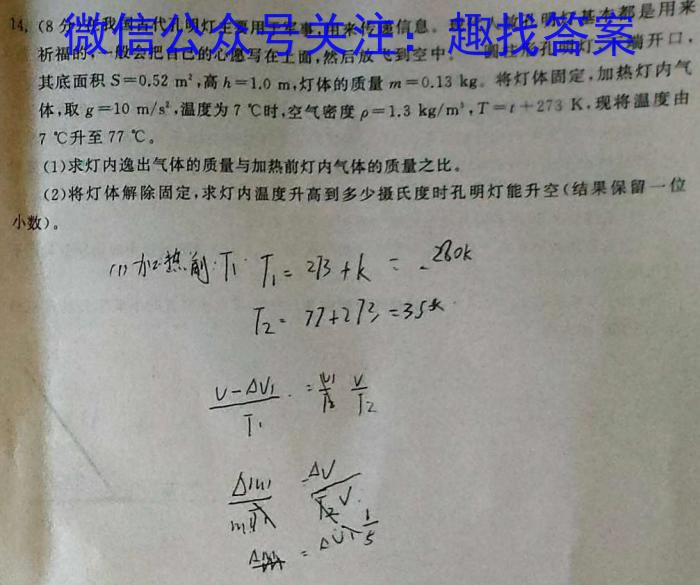 14. (8分)在我国古代孔明灯主要用于军事,用来传递信息。
微信公众号关注:趣找答案
祈福的,一般会把自己的心愿写在上面,然后放飞到空中。
其底面积 S=0.52 m²,高 h=1.0 m,灯体的质量 m=0.13 kg。将灯体固定,加热灯内气
体,取 g=10 m/s²,温度为 7 ℃时,空气密度 ρ=1.3 kg/m³,T=t+273 K,现将温度由
7 ℃升至 77 ℃。
(1)求灯内逸出气体的质量与加热前灯内气体的质量之比。
(2)将灯体解除固定,求灯内温度升高到多少摄氏度时孔明灯能升空(结果保留一位
小数)。
(1) 加热前:T₁ T₁ = 273 + k = 280k
T₂ = 77+273 = 35
V-ΔV₁ / T₁ = V / T₂
Δm = ΔV / V
= 1/5